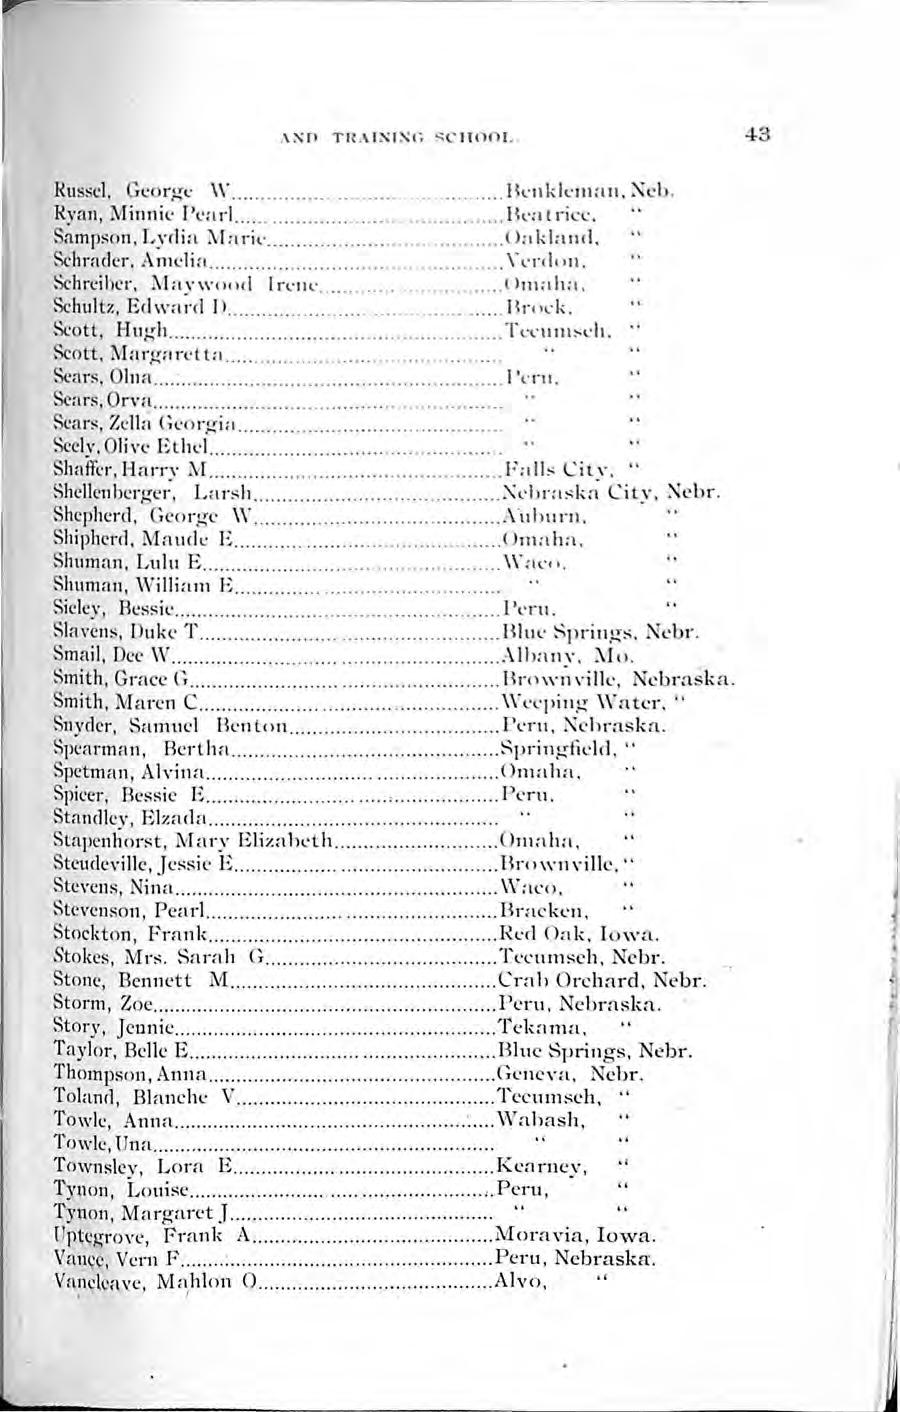 AND TRAINING SCHOOL. 43
Russel, George W. Benkleman, Neb.
Ryan, Minnie Pearl Beatrice, "
Sampson, Lydia Marie Oakland, "
Schrader, Amelia Verdon, "
Schreiber, Maywood Irene Omaha, "
Schultz, Edward D. Brock, "
Scott, Hugh Tecumseh, "
Scott, Margaretta " "
Sears, Olna Peru, "
Sears, Orva " "
Sears, Zella Georgia " "
Seely, Olive Ethel " "
Shaffer, Harry M. Falls City, "
Shellenberger, Larsh Nebraska City, Nebr.
Shepherd, George W. Auburn, "
Shipherd, Maude E. Omaha, "
Shuman, Lulu E. Waco, "
Shuman, William E. " "
Sieley, Bessie Peru, "
Slavens, Duke T. Blue Springs, Nebr.
Smail, Dee W. Albany, Mo.
Smith, Grace G. Brownville, Nebraska.
Smith, Maren C. Weeping Water, "
Snyder, Samuel Benton Peru, Nebraska.
Spearman, Bertha Springfield, "
Spetman, Alvina Omaha, "
Spicer, Bessie E. Peru, "
Standley, Elzada " "
Stapenhorst, Mary Elizabeth Omaha, "
Steudeville, Jessie E. Brownville, "
Stevens, Nina Waco, "
Stevenson, Pearl Bracken, "
Stockton, Frank Red Oak, Iowa.
Stokes, Mrs. Sarah G. Tecumseh, Nebr.
Stone, Bennett M. Crab Orchard, Nebr.
Storm, Zoe Peru, Nebraska.
Story, Jennie Tekama, "
Taylor, Belle E. Blue Springs, Nebr.
Thompson, Anna Geneva, Nebr.
Toland, Blanche V. Tecumseh, "
Towle, Anna Wabash, "
Towle, Una " "
Townsley, Lora E. Kearney, "
Tynon, Louise Peru, "
Tynon, Margaret J. " "
Uptegrove, Frank A. Moravia, Iowa.
Vance, Vern F. Peru, Nebraska.
Vancleave, Mahlon O. Alvo, "